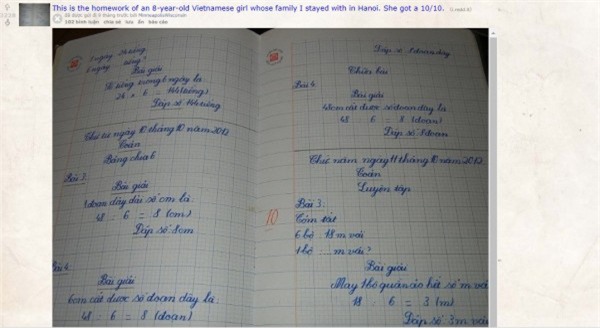 This is the homework of an 8-year-old Vietnamese girl whose family I stayed with in Hanoi. She got a 10/10. (i.redd.it)
102 bình luận chia sẻ lưu ẩn báo cáo
1 ngày 24 tiếng
6 ngày tiếng?
Bài giải
Số tiếng trong 6 ngày là:
24 × 6 = 144 (tiếng)
Đáp số 144 tiếng
Thứ tư ngày 10 tháng 10 năm 2012
Toán
Bảng chia 6
Bài 3
Bài giải
1 đoạn dây dài số cm là:
48 : 6 = 8 (cm)
Đáp số 8cm
Bài 4
Bài giải
6cm cắt được số đoạn dây là:
48 : 6 = 8 (đoạn)
10
Đáp số 8 đoạn dây
Chiều bài
Bài 4
Bài giải
48cm cắt được số đoạn dây là
48 : 6 = 8 (đoạn)
Đáp số 8 đoạn
Thứ năm ngày 11 tháng 10 năm 2012
Toán
Luyện tập
Bài 3:
Tóm tắt
6 bộ : 18 m vải
1 bộ : ... m vải?
Bài giải
May 1 bộ quần áo hết số m vải
18 : 6 = 3 (m)
Đáp số 3m vải